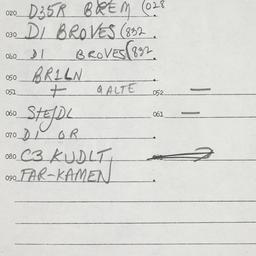 020 D35R BREM (028
030 DI BROVES (832
060 DI BROVES (832
050 BR1LN
051 + GALTE 052 —
060 STEJDL 061 —
070 DI OR
080 C3 KUDLT
090 FAR-KAMEN